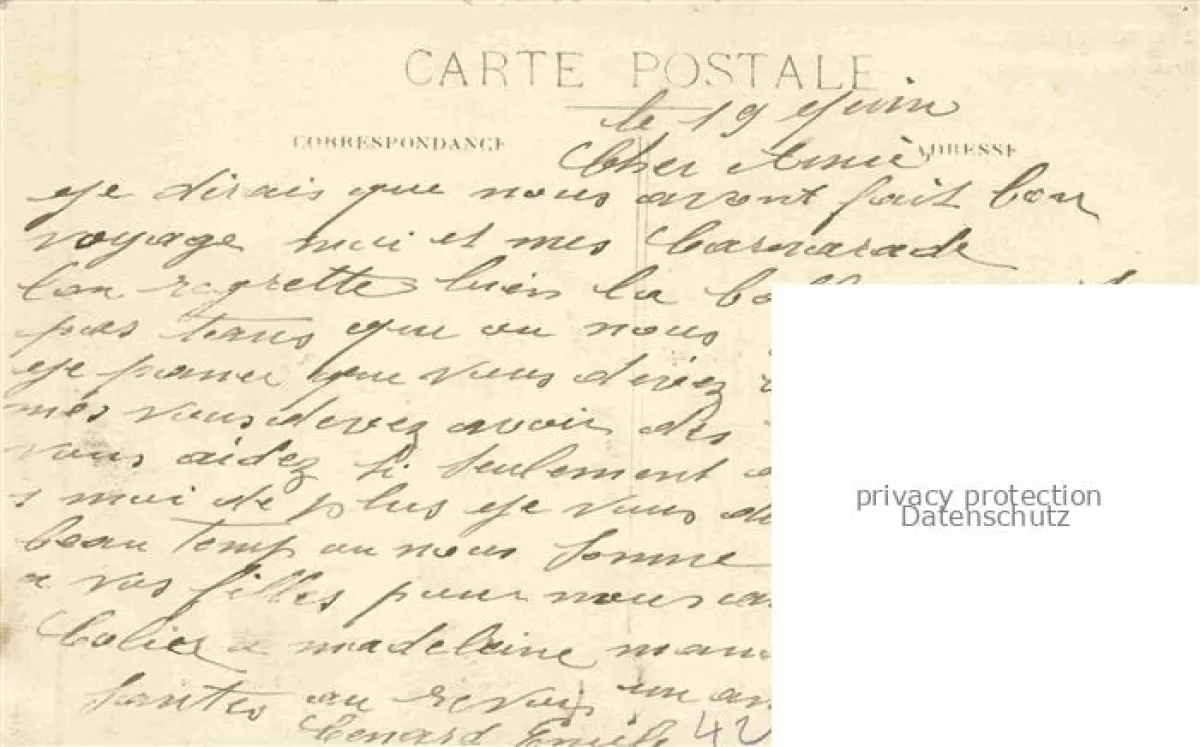 CARTE POSTALE
le 19 Juin
CORRESPONDANCE
ADRESSE
Cher Amie,
je dirais que nous avont fait bon
voyage moi et mes Camarade
l'on regrette bien la
pas tans que ou nous
je panse que vous devez
mes vous devez avoir des
vous aidez si seulement
moi de plus je vous
beau temp ou nous somme
a vos filles pour nous
a madelaine
santes au revoir un
Emile 42
privacy protection
Datenschutz